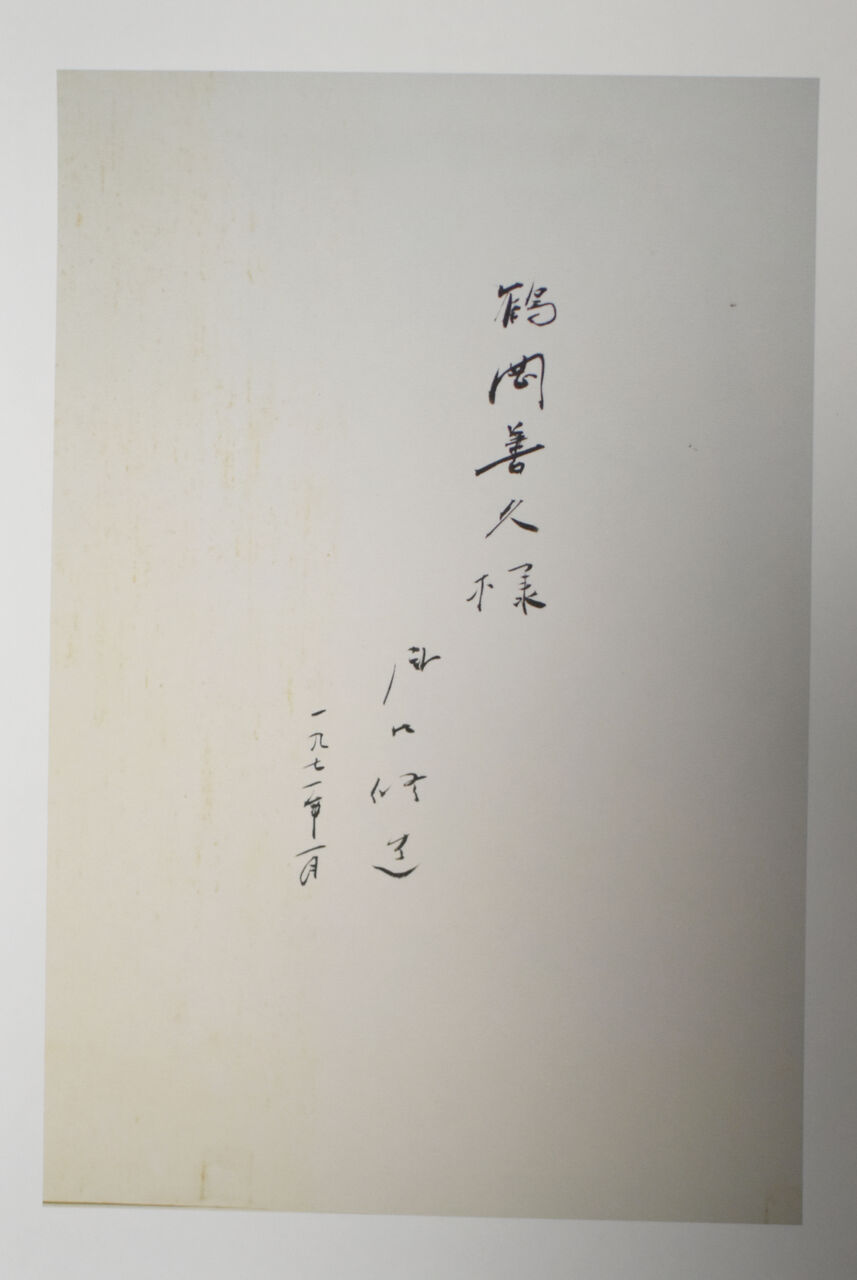 鶴岡善久様
瀧口修造
一九七一年一月